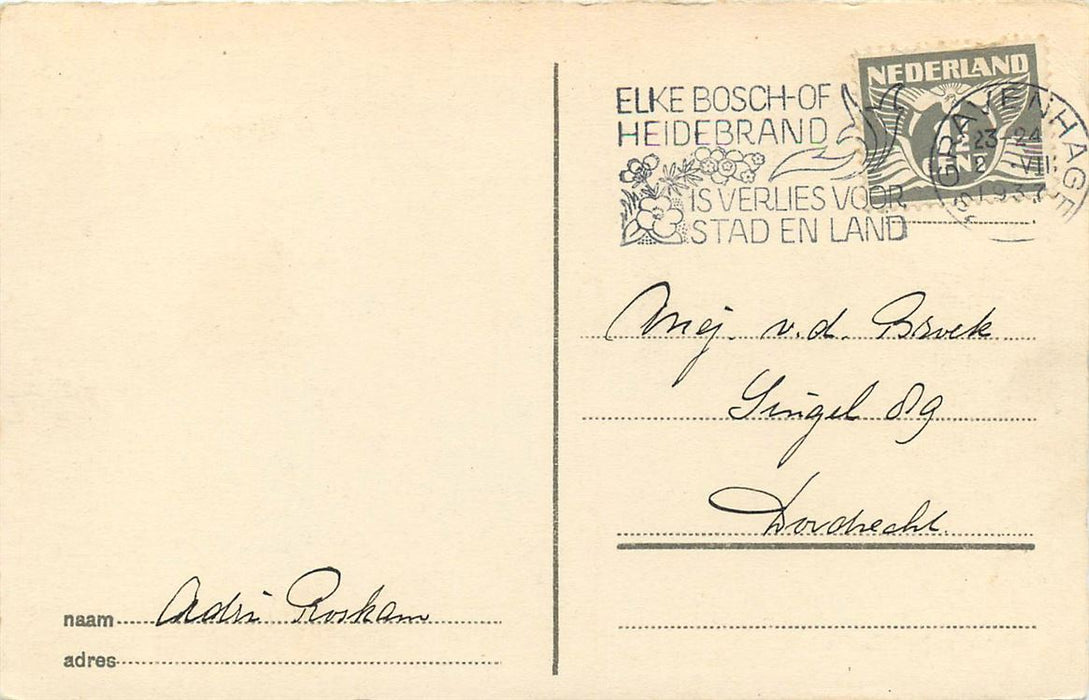 ELKE BOSCH-OF
HEIDEBRAND
IS VERLIES VOOR
STAD EN LAND
NEDERLAND
1½
CENT
'S GRAVENHAGE
23-24
VIII
1937
Mej. v.d. Broek
Singel 89
Dordrecht.
naam Adri Roskam
adres